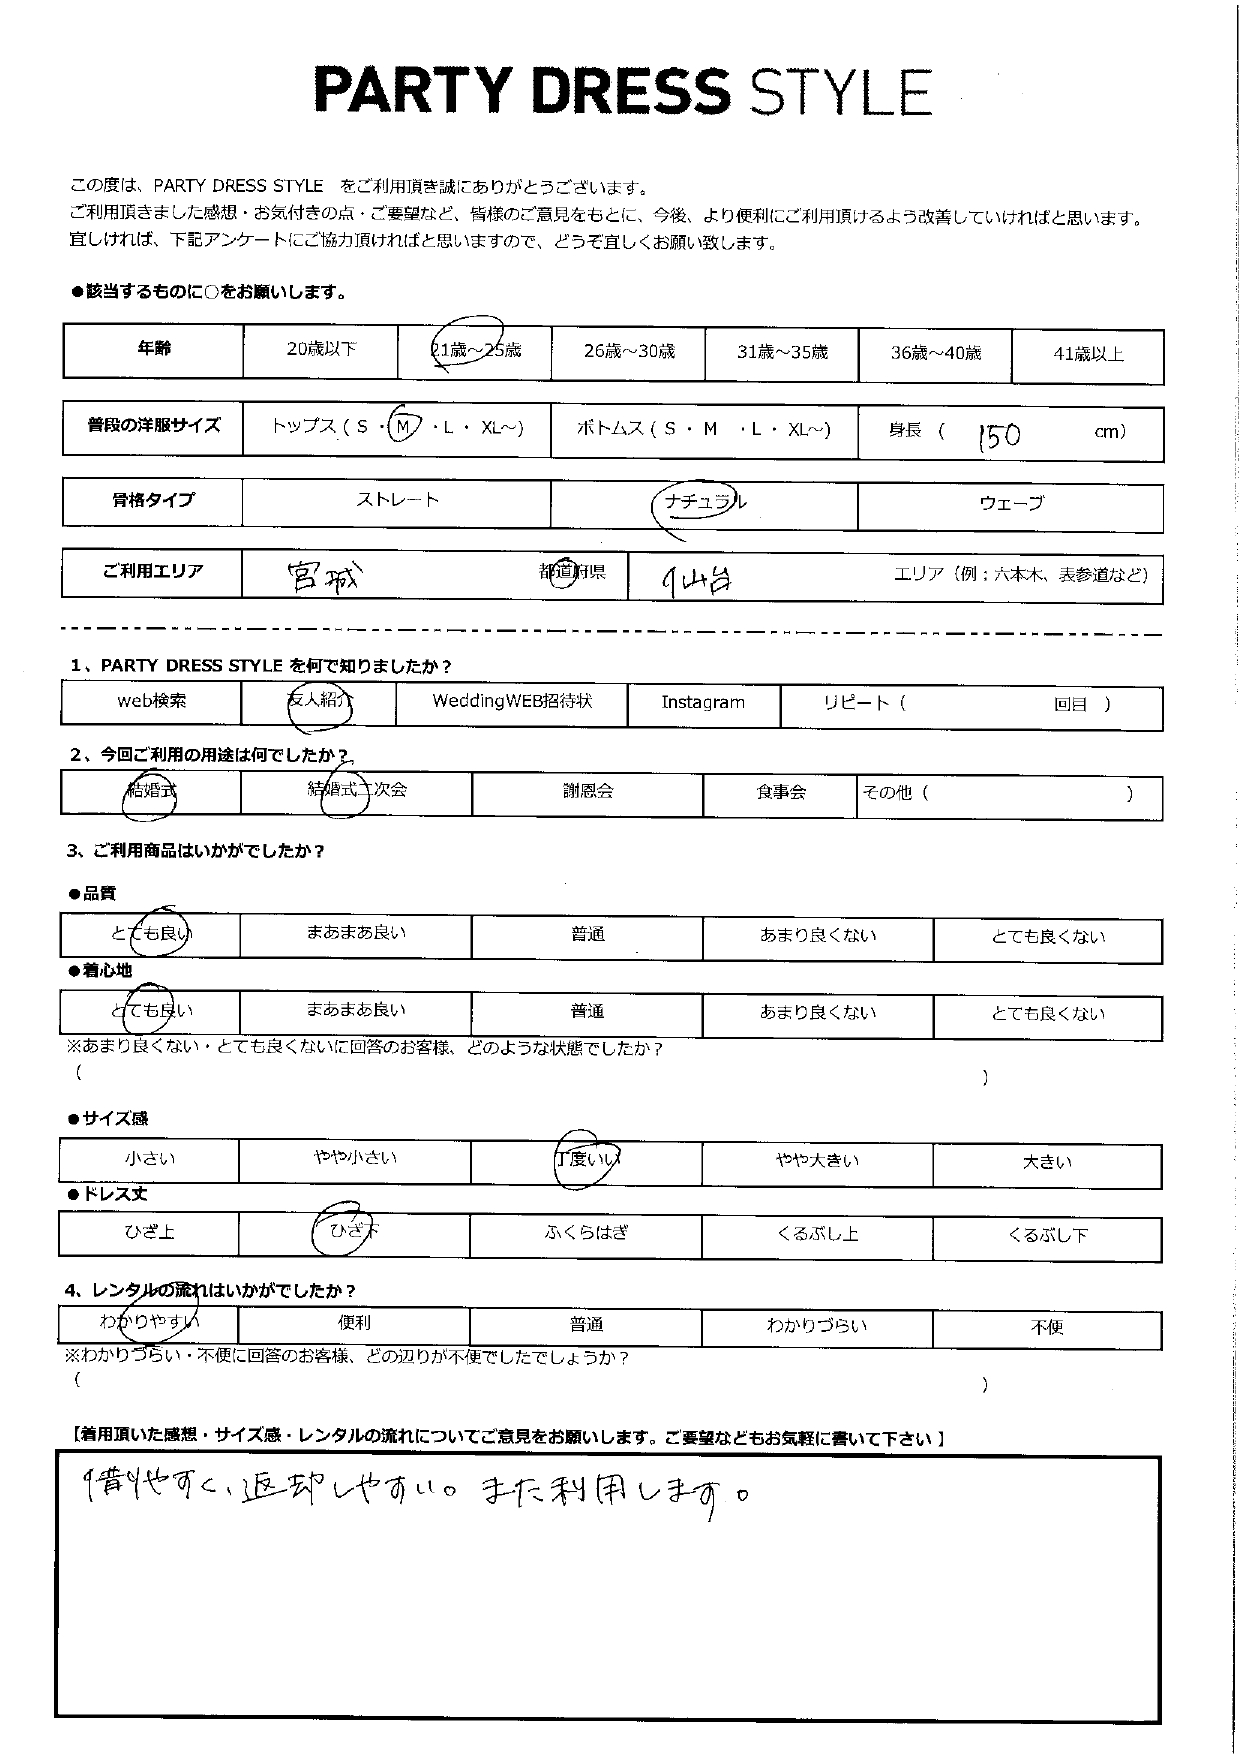 PARTY DRESS STYLE
この度は、PARTY DRESS STYLE をご利用頂き誠にありがとうございます。
ご利用頂きました感想・お気付きの点・ご要望など、皆様のご意見をもとに、今後、より便利にご利用頂けるよう改善していければと思います。
宜しければ、下記アンケートにご協力頂ければと思いますので、どうぞ宜しくお願い致します。
●該当するものに○をお願いします。
年齢 20歳以下 21歳～25歳 26歳～30歳 31歳～35歳 36歳～40歳 41歳以上
普段の洋服サイズ トップス ( S ・ M ・ L ・ XL～) ボトムス ( S ・ M ・ L ・ XL～) 身長 ( 150 cm)
骨格タイプ ストレート ナチュラル ウェーブ
ご利用エリア 宮城 都道府県 仙台 エリア（例：六本木、表参道など）
1、PARTY DRESS STYLE を何で知りましたか？
web検索 友人紹介 WeddingWEB招待状 Instagram リピート（ 回目 ）
2、今回ご利用の用途は何でしたか？
結婚式 結婚式二次会 謝恩会 食事会 その他（ ）
3、ご利用商品はいかがでしたか？
●品質
とても良い まあまあ良い 普通 あまり良くない とても良くない
●着心地
とても良い まあまあ良い 普通 あまり良くない とても良くない
※あまり良くない・とても良くないに回答のお客様、どのような状態でしたか？
（ ）
●サイズ感
小さい やや小さい 丁度いい やや大きい 大きい
●ドレス丈
ひざ上 ひざ下 ふくらはぎ くるぶし上 くるぶし下
4、レンタルの流れはいかがでしたか？
わかりやすい 便利 普通 わかりづらい 不便
※わかりづらい・不便に回答のお客様、どの辺りが不便でしたでしょうか？
（ ）
【着用頂いた感想・サイズ感・レンタルの流れについてご意見をお願いします。ご要望などもお気軽に書いて下さい 】
借りやすく、返却しやすい。また利用します。